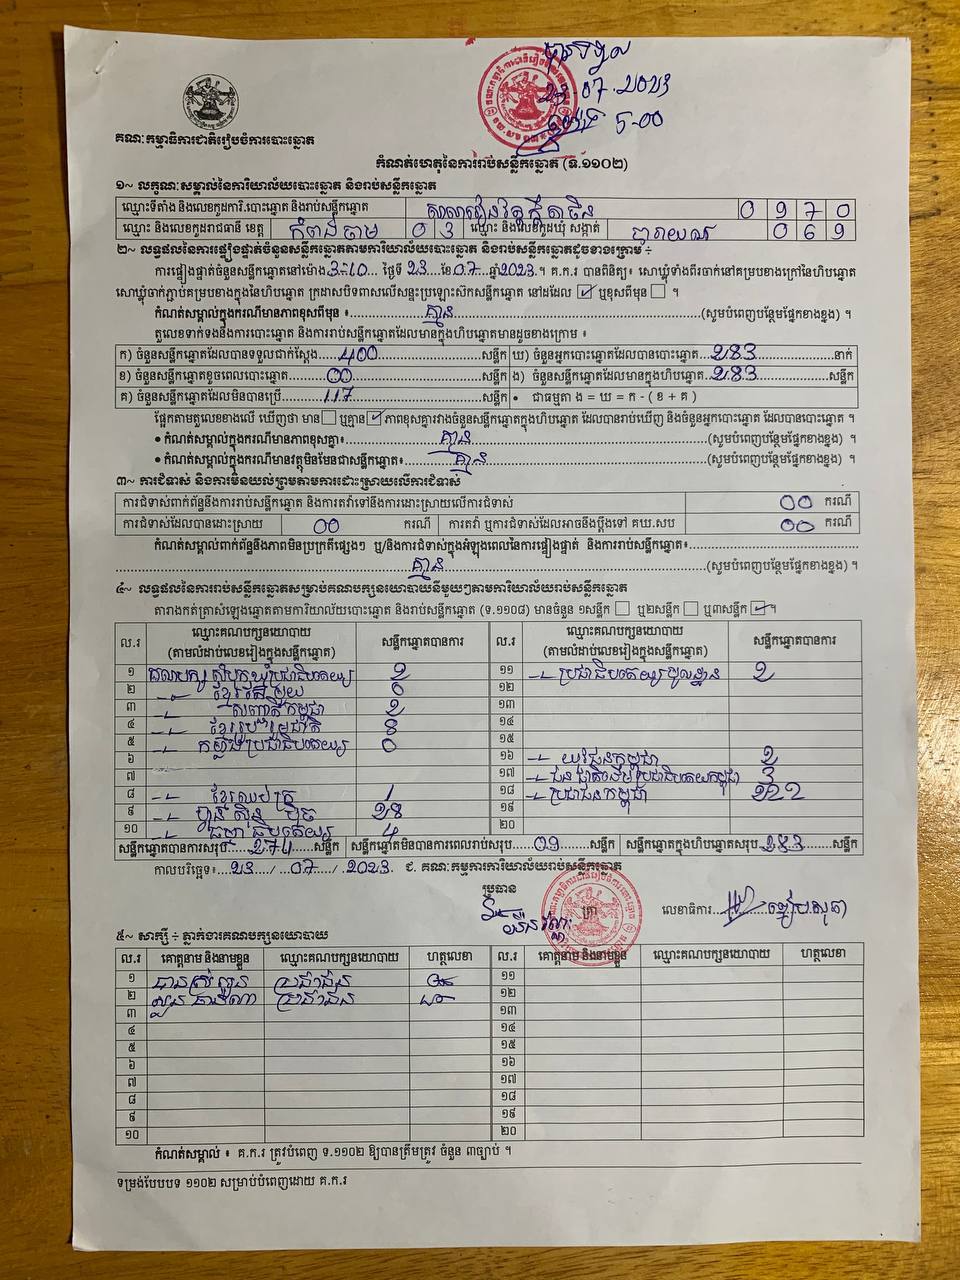 បានបិទផ្សាយ
23.07.2023
ម៉ោង 5-00
គណៈកម្មាធិការជាតិរៀបចំការបោះឆ្នោត
កំណត់ហេតុនៃការរាប់សន្លឹកឆ្នោត (ទ.១១០២)
១~ លក្ខណៈសម្គាល់នៃការិយាល័យបោះឆ្នោត និងរាប់សន្លឹកឆ្នោត
ឈ្មោះទីតាំង និងលេខកូដការិ.បោះឆ្នោត និងរាប់សន្លឹកឆ្នោត 0 9 7 0
ឈ្មោះ និងលេខកូដរាជធានី ខេត្ត កំពង់ចាម 0 3 ឈ្មោះ និងលេខកូដឃុំ សង្កាត់ បារាយណ៍ 0 6 9
២~ លទ្ធផលនៃការផ្ទៀងផ្ទាត់ចំនួនសន្លឹកឆ្នោតតាមការិយាល័យបោះឆ្នោត និងរាប់សន្លឹកឆ្នោតដូចខាងក្រោម ÷
ការផ្ទៀងផ្ទាត់ចំនួនសន្លឹកឆ្នោតនៅម៉ោង 3-10 ថ្ងៃទី 23 ខែ 07 ឆ្នាំ 2023 ។ គ.ក.រ បានពិនិត្យ៖ សោឃ្លុំទាំងពីរចាក់នៅគម្របខាងក្រៅនៃហិបឆ្នោត
សោឃ្លុំចាក់ភ្ជាប់គម្របខាងក្នុងនៃហិបឆ្នោត ក្រដាសបិទពាសលើសន្ទះប្រឡោះស៊កសន្លឹកឆ្នោត នៅដដែល ☑ ឬខុសពីមុន ☐ ។
កំណត់សម្គាល់ក្នុងករណីមានភាពខុសពីមុន ៖ គ្មាន (សូមបំពេញបន្ថែមផ្នែកខាងខ្នង) ។
តួលេខទាក់ទងនឹងការបោះឆ្នោត និងការរាប់សន្លឹកឆ្នោតដែលមានក្នុងហិបឆ្នោតមានដូចខាងក្រោម ៖
ក) ចំនួនសន្លឹកឆ្នោតដែលបានទទួលជាក់ស្ដែង 400 សន្លឹក ឃ) ចំនួនអ្នកបោះឆ្នោតដែលបានបោះឆ្នោត 283 នាក់
ខ) ចំនួនសន្លឹកឆ្នោតខូចពេលបោះឆ្នោត 00 សន្លឹក ង) ចំនួនសន្លឹកឆ្នោតដែលមានក្នុងហិបឆ្នោត 283 សន្លឹក
គ) ចំនួនសន្លឹកឆ្នោតដែលមិនបានប្រើ 117 សន្លឹក • ជាធម្មតា ង = ឃ = ក - ( ខ + គ )
ផ្អែកតាមតួលេខខាងលើ ឃើញថា មាន ☐ ឬគ្មាន ☑ ភាពខុសគ្នារវាងចំនួនសន្លឹកឆ្នោតក្នុងហិបឆ្នោត ដែលបានរាប់ឃើញ និងចំនួនអ្នកបោះឆ្នោត ដែលបានបោះឆ្នោត ។
• កំណត់សម្គាល់ក្នុងករណីមានភាពខុសគ្នា៖ គ្មាន (សូមបំពេញបន្ថែមផ្នែកខាងខ្នង) ។
• កំណត់សម្គាល់ក្នុងករណីមានវត្ថុមិនមែនជាសន្លឹកឆ្នោត៖ គ្មាន (សូមបំពេញបន្ថែមផ្នែកខាងខ្នង) ។
៣~ ការជំទាស់ និងការមិនយល់ព្រមតាមការដោះស្រាយលើការជំទាស់
ការជំទាស់ពាក់ព័ន្ធនឹងការរាប់សន្លឹកឆ្នោត និងការតវ៉ាទៅនឹងការដោះស្រាយលើការជំទាស់ 00 ករណី
ការជំទាស់ដែលបានដោះស្រាយ 00 ករណី ការតវ៉ា ឬការជំទាស់ដែលអាចនឹងប្ដឹងទៅ គឃ.សប 00 ករណី
កំណត់សម្គាល់ពាក់ព័ន្ធនឹងភាពមិនប្រក្រតីផ្សេងៗ ឬ/និងការជំទាស់ក្នុងអំឡុងពេលនៃការផ្ទៀងផ្ទាត់ និងការរាប់សន្លឹកឆ្នោត៖
គ្មាន (សូមបំពេញបន្ថែមផ្នែកខាងខ្នង) ។
៤~ លទ្ធផលនៃការរាប់សន្លឹកឆ្នោតសម្រាប់គណបក្សនយោបាយនីមួយៗតាមការិយាល័យរាប់សន្លឹកឆ្នោត
តារាងកត់ត្រាសំឡេងឆ្នោតតាមការិយាល័យបោះឆ្នោត និងរាប់សន្លឹកឆ្នោត (ទ.១១០៨) មានចំនួន ១សន្លឹក ☐ ឬ២សន្លឹក ☐ ឬ៣សន្លឹក ☑ ។
ល.រ ឈ្មោះគណបក្សនយោបាយ (តាមលំដាប់លេខរៀងក្នុងសន្លឹកឆ្នោត) សន្លឹកឆ្នោតបានការ ល.រ ឈ្មោះគណបក្សនយោបាយ (តាមលំដាប់លេខរៀងក្នុងសន្លឹកឆ្នោត) សន្លឹកឆ្នោតបានការ
១ គណបក្ស សំបុកឃ្មុំប្រជាធិបតេយ្យ 2 ១១ ប្រជាធិបតេយ្យមូលដ្ឋាន 2
២ ខ្មែរតែមួយ 0 ១២
៣ សញ្ជាតិកម្ពុជា 2 ១៣
៤ ខ្មែររួបរួមជាតិ 8 ១៤
៥ កម្លាំងប្រជាធិបតេយ្យ 0 ១៥
៦ ១៦ យុវជនកម្ពុជា 2
៧ ១៧ ជនជាតិដើមប្រជាធិបតេយ្យកម្ពុជា 3
៨ ខ្មែរឈប់ក្រ 1 ១៨ ប្រជាជនកម្ពុជា 222
៩ ហ្វ៊ុនស៊ិនប៉ិច 28 ១៩
១០ ធម្មាធិបតេយ្យ 4 ២០
សន្លឹកឆ្នោតបានការសរុប 274 សន្លឹក សន្លឹកឆ្នោតមិនបានការពេលរាប់សរុប 09 សន្លឹក សន្លឹកឆ្នោតក្នុងហិបឆ្នោតសរុប 283 សន្លឹក
កាលបរិច្ឆេទ៖ 23 / 07 / 2023 ជ. គណៈកម្មការការិយាល័យរាប់សន្លឹកឆ្នោត
ប្រធាន ត្រា លេខាធិការ
៥~ សាក្សី ÷ ភ្នាក់ងារគណបក្សនយោបាយ
ល.រ គោត្តនាម និងនាមខ្លួន ឈ្មោះគណបក្សនយោបាយ ហត្ថលេខា ល.រ គោត្តនាម និងនាមខ្លួន ឈ្មោះគណបក្សនយោបាយ ហត្ថលេខា
១ ប្រជាជន ១១
២ ប្រជាជន ១២
៣ ១៣
៤ ១៤
៥ ១៥
៦ ១៦
៧ ១៧
៨ ១៨
៩ ១៩
១០ ២០
កំណត់សម្គាល់ ៖ គ.ក.រ ត្រូវបំពេញ ទ.១១០២ ឱ្យបានត្រឹមត្រូវ ចំនួន ៣ច្បាប់ ។
ទម្រង់បែបបទ ១១០២ សម្រាប់បំពេញដោយ គ.ក.រ